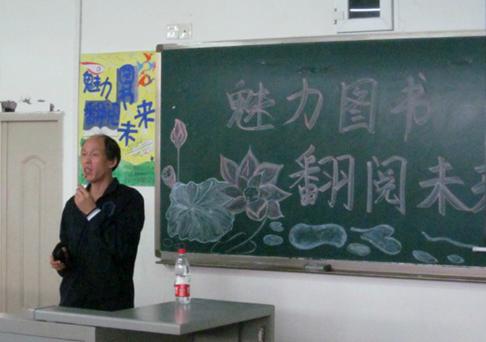 魅力图书
翻阅未来
魅力图书
翻阅未来